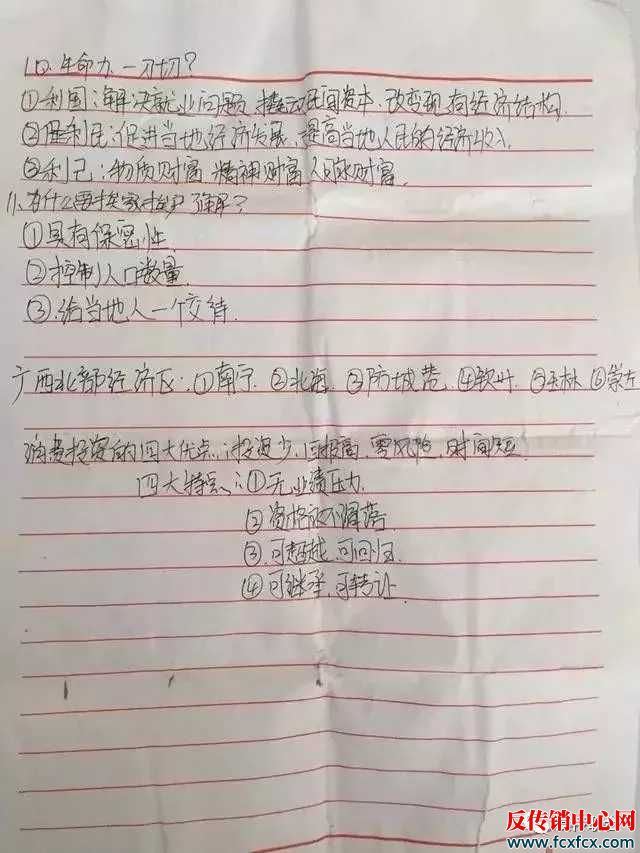 10.生命力一刀切?
①利国:解决就业问题 撬动民间资本.改变现有经济结构.
②利民:促进当地经济发展.提高当地人民的经济收入
③利己:物质财富 精神财富 人脉财富.
11.为什么要挨家挨户了解?
①具有保密性.
②控制人口数量.
③.给当地人一个交待.
广西北部经济区:①南宁 ②北海 ③防城港 ④钦州 ⑤玉林 ⑥崇左
消费投资的四大优点:投资少.回报高.零风险.时间短.
四大特点:①无业绩压力.
②资格永不降落.
③.可超越.可回归.
④可继承.可转让.
反传销中心网
www.fcxfcx.com